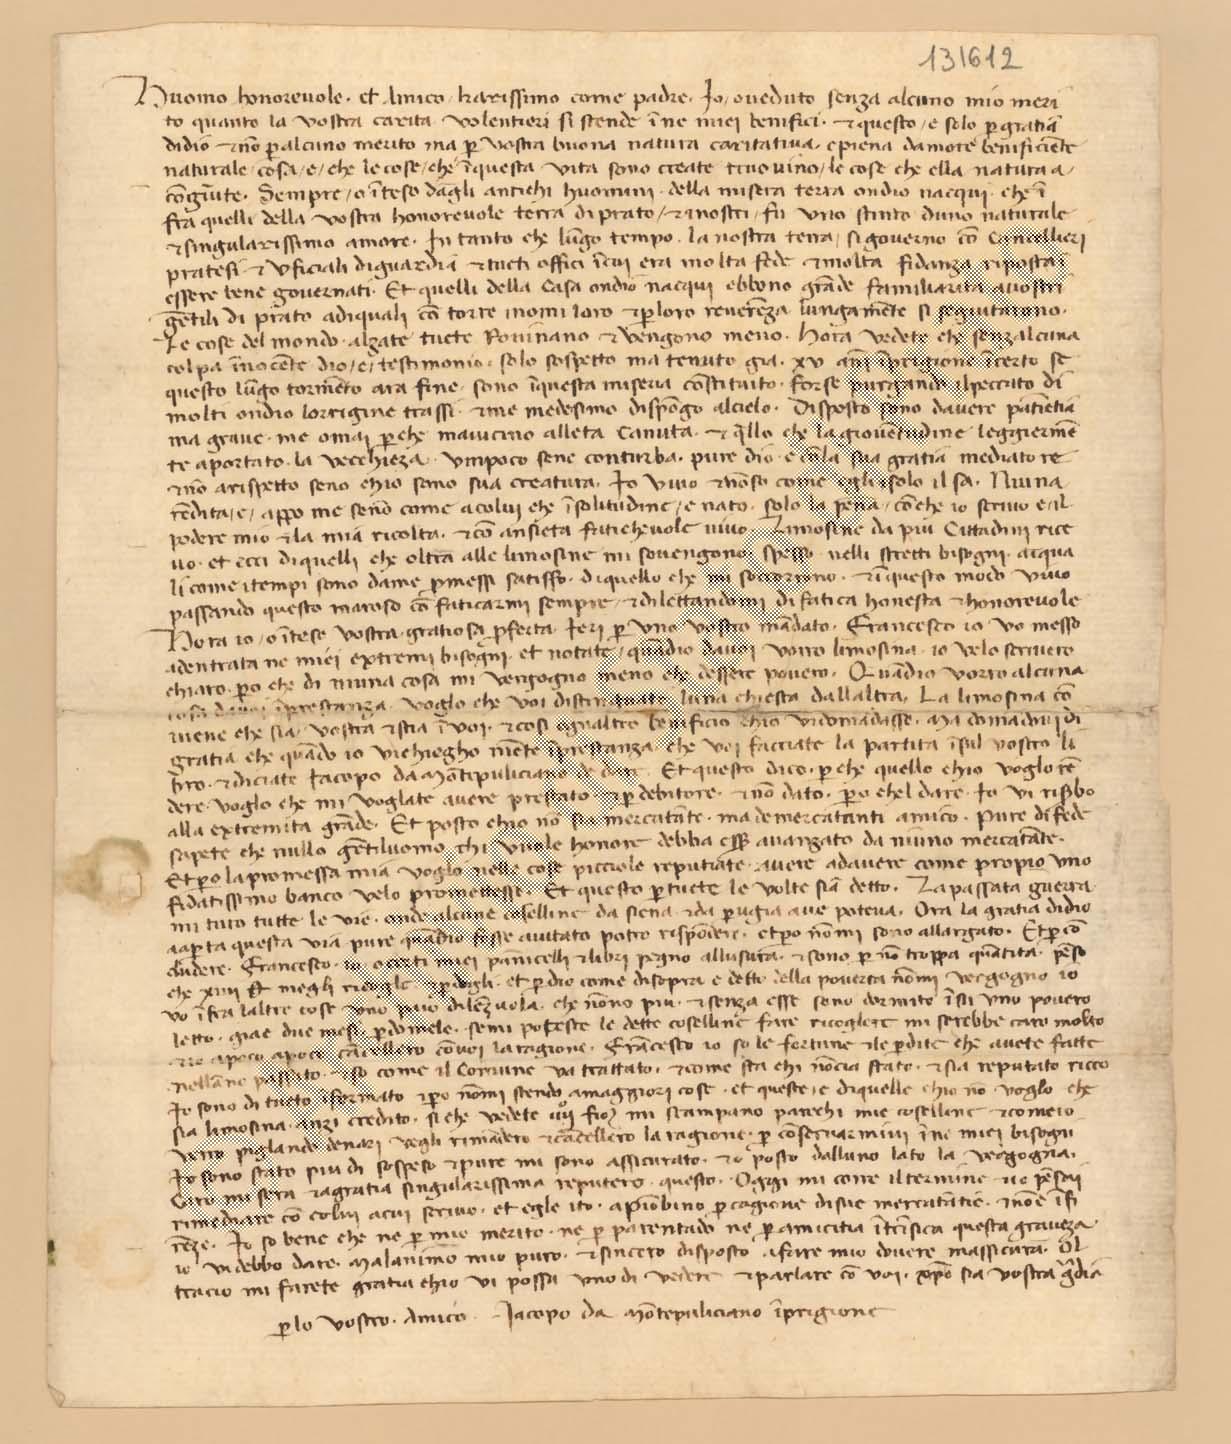 131612
Huomo honorevole. et Amico karissimo come padre. Io, o veduto senza alcuno mio meri
to quanto la vostra carita volentieri si stende i͞ ne miei benifici. et questo, e solo p̱ gratia
didio et no͞ p̱ alcuno merito ma p̱ vostra buona natura caritativa, e piena damore benificie͞te
naturale cosa, e, che le cose, che i͞ questa vita sono create truovino, le cose che ella natura a,
co͞giu͞te. Sempre, o i͞teso dagli antichi huomini della misera terra ondio nacqui che i͞
fra quelli della vostra honorevole terra di prato, et i nostri, fu uno stinto duno naturale
et singularissimo amore. In tanto che lu͞go tempo. la nostra terra, si governo co͞ Cancellieri
pratesi et uficiali di guardia et tucti offici i͞ cui era molta fede et molta fidanza riposta,
essere bene governati. Et quelli della Casa ondio nacqui ebbono gra͞de familiarita a vostri
ge͞tili di prato a di quali co͞ torre i nomi loro et p̱ loro revere͞za lungame͞te si seguitarono.
Le cose del mondo. alzate tucte Rovinano et vengono meno. Hora vedete che senzalcuna
colpa i͞noce͞te dio, e, testimonio. solo sospetto ma tenuto gia. xv a͞ni i͞ prigione i͞certo se
questo lu͞go torme͞to ara fine. sono i͞ questa miseria co͞stituito. forse purgando il peccato di
molti ondio lorrigine trassi. et me medesimo dispo͞go al cielo. Disposto sono davere patie͞tia
ma grave me omai p̱che mavicino alleta Canuta. et q̄llo che la giove͞tudine leggierme͞
te a portato. la vecchieza. un poco sene conturba. pure dio e co͞ la sua gratia mediatore
et no͞ a rispetto seno chio sono sua creatura. Io vivo et no͞ so come egli solo il sa. Niuna
re͞dita, e, appo me seno͞ come a colui che i͞ solitudine, e nato. solo la pe͞na, co͞ che io scrivo e, il
podere mio et la mia ricolta. et co͞ ansieta fatichevole vivo. Limosine da piu Cittadini rice
vo. et ecci di quelli che oltra alle limosine mi sovengono. spesso nelli stretti bisogni. a i qua
li come i tempi sono da me p̱messi satisfo. di quello che mi soccorrono. et i͞ questo modo vivo
passando questo maroso co͞ faticarmi sempre, et dilettandomi di fatica honesta et honorevole
Hora io, o i͞tese vostra gratiosa p̱ferta. Ieri p̱ uno vostro ma͞dato. Francesco io vo messo
adentrata ne miei extremi bisogni. et notate, qua͞dio da voi vorro limosina. io velo scrivero
chiaro. p̱o che di niuna cosa mi vergogno meno che dessere povero. Qua͞dio vorro alcuna
cosa da voi i͞ prestanza. voglo che voi distinguiate luna chiesta dallaltra. La limosina co͞
viene che sia, vostra et stia i͞ voi. et cosi ognaltro benificio chio vi domandasse. Ma domandovi di
gratia che qua͞do io vi chiegho nie͞te i͞ prestanza. che voi facciate la partita i͞ sul vostro li
bro. et diciate Iacopo da Mo͞tepuliciano de dare. Et questo dico. p̱che quello chio voglo re͞
dere. voglo che mi voglate avere prestato et p̱ debitore. et no͞ dato. p̱o chel dare. Io vi risibo
alla extremita gra͞de. Et posto chio no͞ sia mercata͞te. ma de mercatanti amico. Pure di fede
sapete che nullo ge͞tiluomo chi vuole honore debba esse͞ avanzato da niuno mercata͞te.
Et p̱o la promessa mia voglo nelle cose picciole reputiate. avere a davere come proprio uno
fidatissimo banco velo promettesse. Et questo p̱ tucte le volte sia detto. La passata guerra
mi tolto tutte le vie. onde alcune coselline da siena et da perugia ave poteva. Ora la gratia didio
a ap̱ta questa via pure qua͞dio fosse aiutato potro rispo͞dere. et p̱o no͞ mi sono allargato. Et p̱ co͞
cludere. Francesco. io o certi miei pa͞nicelli et libri pegno allusura. et sono p̱ no͞ troppa qua͞tita. pe͞so
vo i͞ fra laltre cose uno paio di le͞zuola. che no͞no piu. et senza esse sono dormito i͞ su uno povero
letto. gia e due mesi p̱do͞mele. se mi poteste le dette coselline fare ricoglere mi serebbe caro molto
et io a poco a poco ca͞cellero co͞ voi la ragione. Fra͞cesco io so le fortune et le p̱dite che avete fatte
nella͞no passato. et so come il Comune va trattato. et come sta chi no͞cia stato et sia reputato ricco
Io sono di tucto i͞formato et p̱o no͞ mi stendo a maggiori cose. et queste, e di quelle chio no͞ voglo che
sia limosina. anzi credito. si che vedete mi scampano parechi mie coselline et come io
vero piglando denari vegli rima͞dero et ca͞cellero la ragione. p̱ co͞servarmivi i͞ ne miei bisogni
Io sono stato piu di sospeso et pure mi sono assicurato. et o posto dalluno lato la vergogna.
Caro mi sera et a gratia singularissima reputero. questo. Oggi mi corre il termine et io pe͞sai
rimediare co͞ colui a cui scrivo. et egle ito. a pio͞bino p̱ cagione di sue mercata͞tie. et no͞ e i͞ fi
re͞ze. Io so bene che ne p̱ mio merito. ne p̱ parentado ne p̱ amicitia i͞tri͞sica questa graveza.
io vi debbo dare. Ma lanimo͞ mio puro. et sincero disposto a fare mio dovere massicura. Ol
traccio mi farete gratia chio vi possa uno di vedere et parlare co͞ voi. xp̱o sia vostra gua͞dia
p̱ lo vostro. Amico. Iacopo da Mo͞tepuliciano i͞ prigione